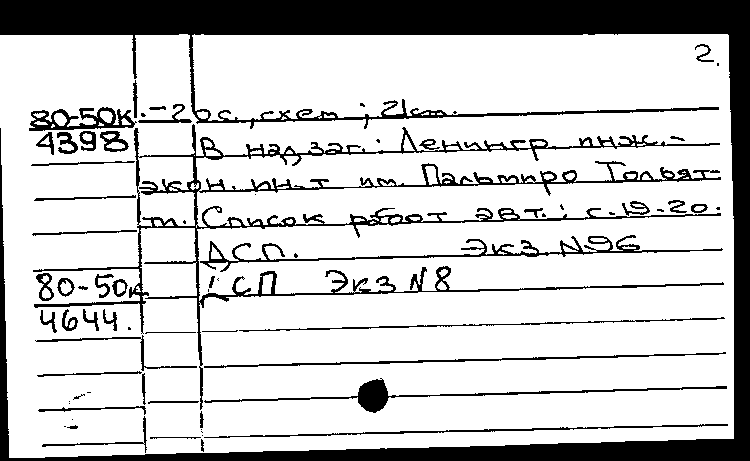 2.
80-50к. - 20 с., схем ; 21 см.
4398 В надзаг.: Ленингр. инж.-
экон. ин-т им. Пальмиро Тольят-
ти. Список работ авт.: с.19-20.
ДСП. Экз N96
80-50к ДСП Экз N8
4644.